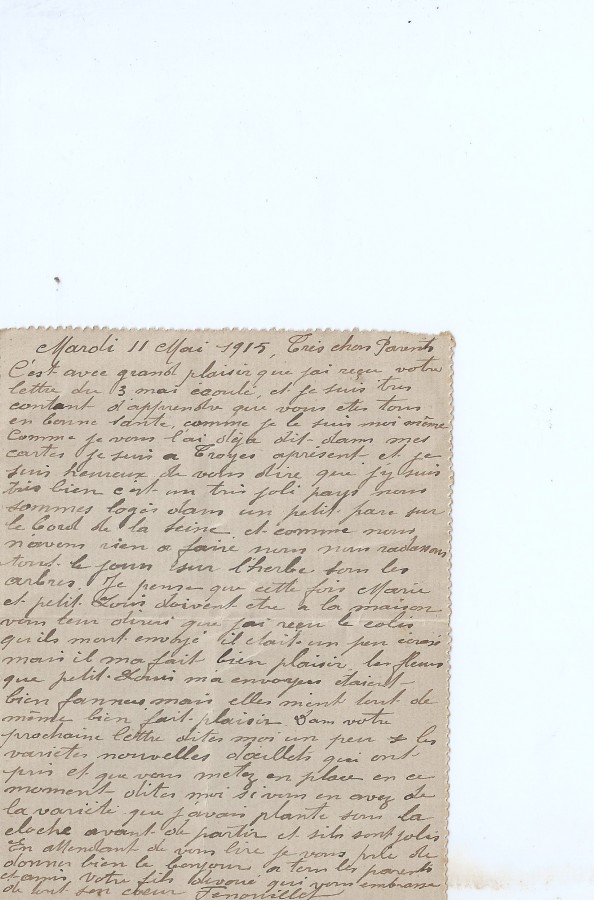 Mardi 11 Mai 1915, Très chers Parents
C'est avec grand plaisir que jai reçu votre
lettre du 3 mai écoulé, et je suis tres
content d'apprendre que vous etes tous
en bonne sante, comme je le suis moi même
Comme je vous l'ai déja dit dans mes
cartes je suis a Troyes apresent et je
suis heureux de vous dire que j'y suis
très bien c'est un très joli pays nous
sommes logés dans un petit parc sur
le bord de la seine et comme nous
n'avons rien a faire nous nous radassons
tout le jour sur l'herbe sous les
arbres. Je pense que cette fois Marie
et petit Louis doivent etre a la maison
vous leur direz que jai reçu le colis
qu'ils mont envoyé il etait un peu écrasé
mais il ma fait bien plaisir les fleurs
que petit Louis m'a envoyees étaient
bien fannees mais elles m'ont tout de
même bien fait plaisir Dans votre
prochaine lettre dites moi un peu les
varietes nouvelles d'œillets qui ont
pris et que vous metez en place en ce
moment dites moi si vous en avez de
la variété que j'avais planté sous la
cloche avant de partir et sils sont jolis
En attendant de vous lire je vous prie de
donner bien le bonjour a tous les parents
et amis votre fils devoué qui vous embrasse
de tout son cœur Fenouillet